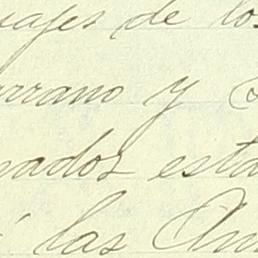 iajes de los
rrano y
nados esta
á las Am